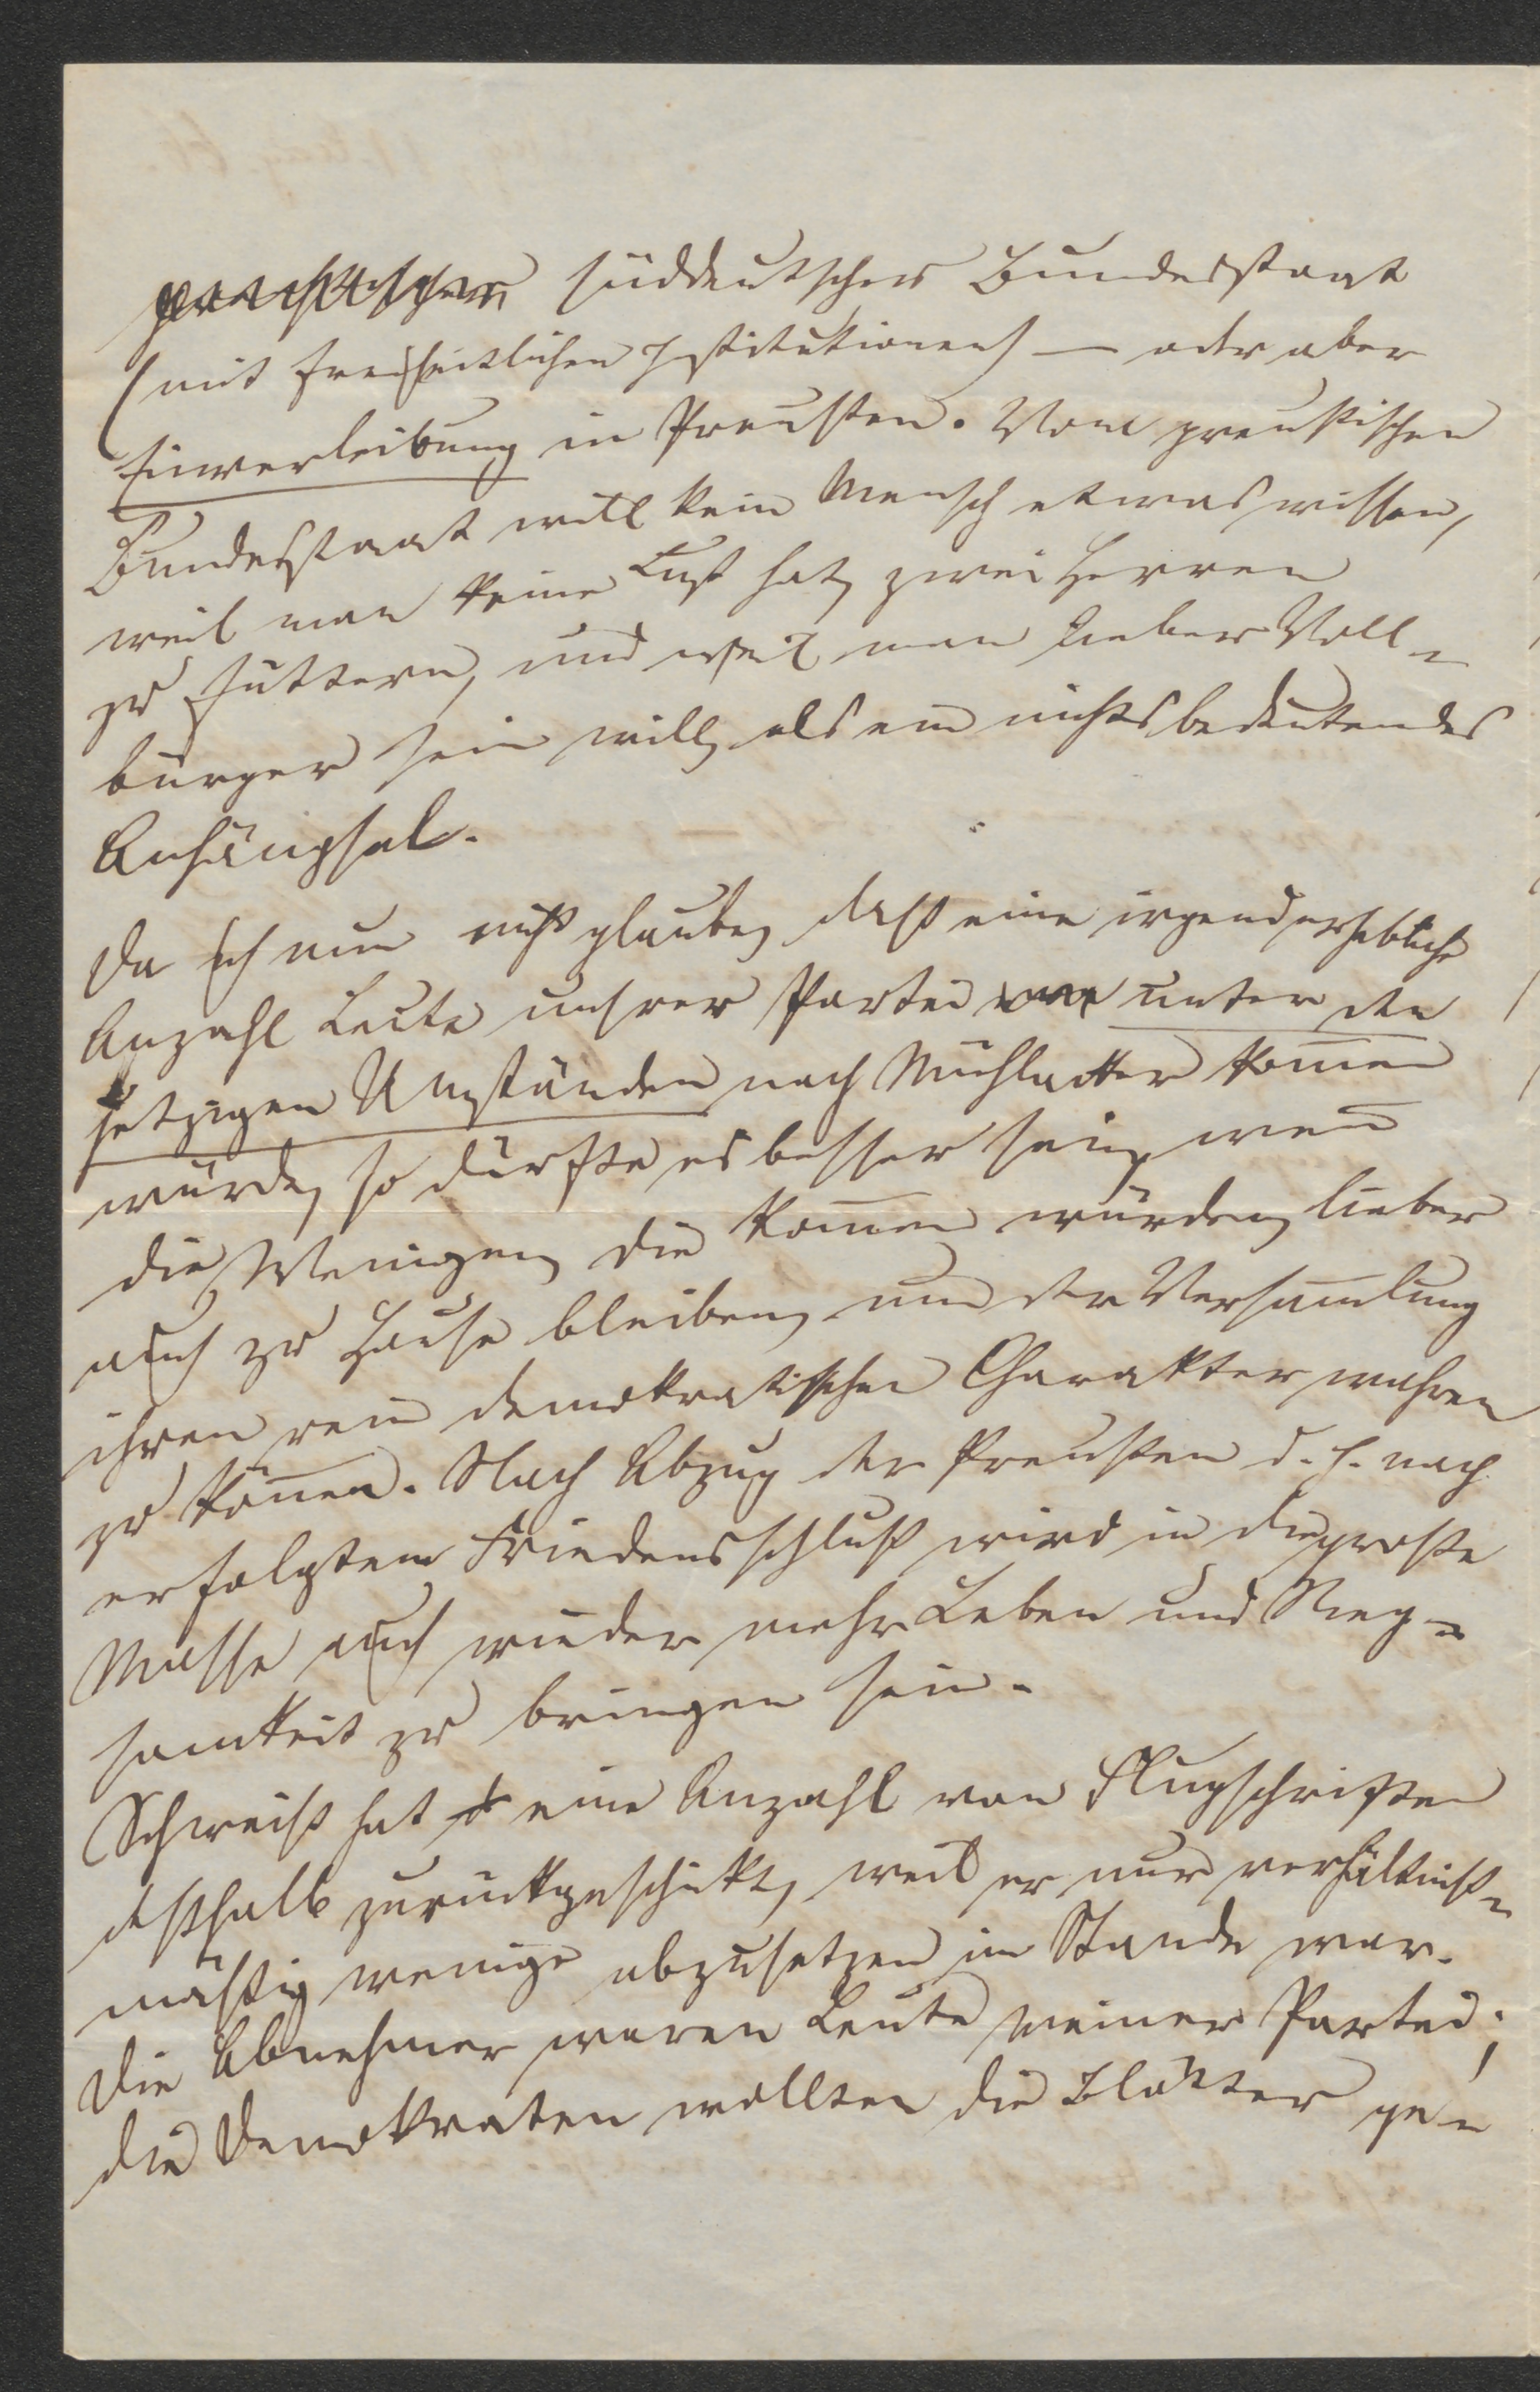 süddeutscher Bundesstaat
(mit freiheitlichen Institutionen) — oder aber
Einverleibung in Preußen. Vom preußischen
Bundesstaat will kein Mensch etwas wissen,
weil man keine Lust hat, zwei Herren
zu füttern, und weil man lieber Voll-
bürger sein will, als ein nichtsbedeutendes
Anhängsel.
Da ich nun nicht glaube, daß eine irgend erhebliche
Anzahl Leute unsrer Partei unter den
jetzigen Umständen nach Mühlacker kom̄en
würde, so dürfte es besser sein, wen̄
die Wenigen, die kom̄en würden, lieber
auch zu Hause bleiben, um der Versam̄lung
ihren rein demokratischen Charakter wahren
zu kön̄en. Nach Abzug der Preußen d. h. nach
erfolgtem Friedensschluß wird in die große
Masse auch wieder mehr Leben und Reg-
samkeit zu bringen sein.
Schweiß hat eine Anzahl von Flugschriften
deßhalb zurückgeschickt, weil er nur verhältniß-
mäßig wenige abzusetzen im Stande war.
Die Abnehmer waren Leute meiner Partei;
die Demokraten wollten die Blätter ge-